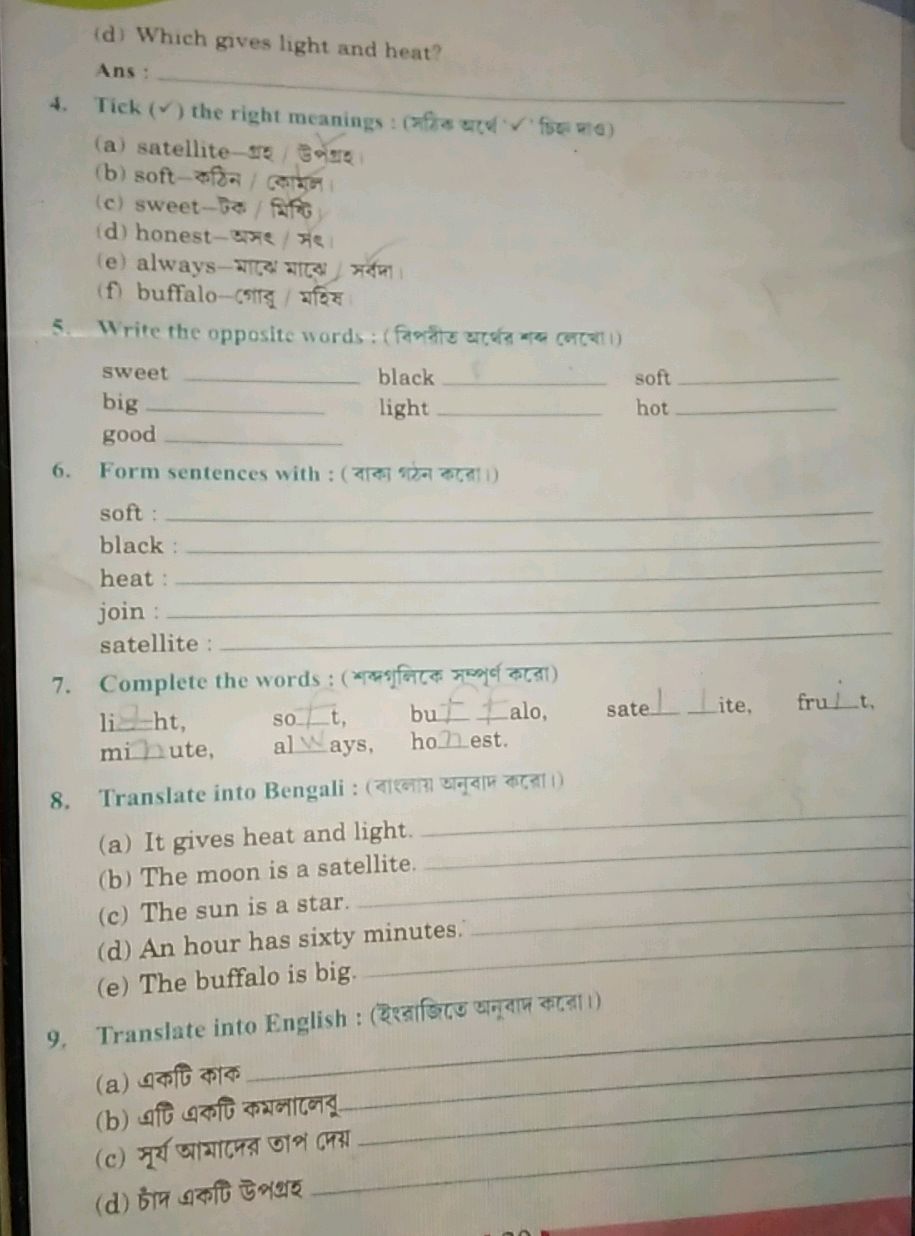 (d) Which gives light and heat?
Ans :
4. Tick (✓) the right meanings : (সঠিক অর্থে '✓' চিহ্ন দাও)
(a) satellite—গ্রহ / উপগ্রহ।
(b) soft—কঠিন / কোমল।
(c) sweet—টক / মিষ্টি।
(d) honest—অসৎ / সৎ।
(e) always—মাঝে মাঝে / সর্বদা।
(f) buffalo—গোরু / মহিষ।
5. Write the opposite words : (বিপরীত অর্থের শব্দ লেখো।)
sweet black soft
big light hot
good
6. Form sentences with : (বাক্য গঠন করো।)
soft :
black :
heat :
join :
satellite :
7. Complete the words : (শব্দগুলিকে সম্পূর্ণ করো)
li g ht, so f t, bu f f alo, sate l l ite, fru i t,
mi n ute, al w ays, ho n est.
8. Translate into Bengali : (বাংলায় অনুবাদ করো।)
(a) It gives heat and light.
(b) The moon is a satellite.
(c) The sun is a star.
(d) An hour has sixty minutes.
(e) The buffalo is big.
9. Translate into English : (ইংরাজিতে অনুবাদ করো।)
(a) একটি কাক
(b) এটি একটি কমলালেবু
(c) সূর্য আমাদের তাপ দেয়
(d) চাঁদ একটি উপগ্রহ